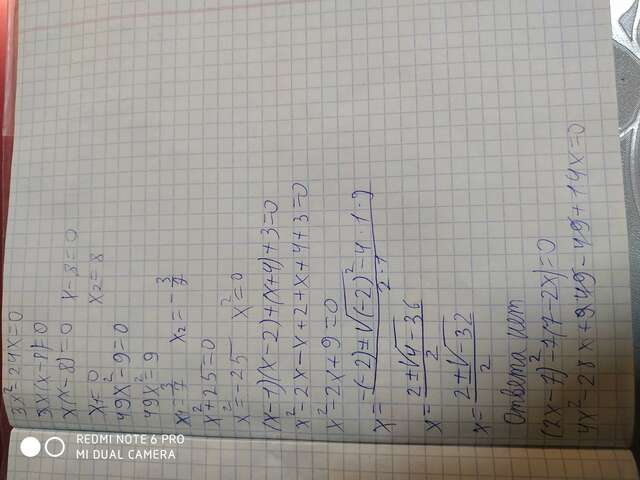 3x²-24x=0
3x(x-8)=0
x(x-8)=0 x-8=0
x=0 x₂=8
49x²-9=0
49x²=9
x₁=3/7 x₂=-3/7
x²+25=0
x²=-25 x²=0
(x-1)(x-2)+(x+4)+3=0
x²-2x-x+2+x+4+3=0
x²-2x+9=0
x=-(-2)±√(-2)²-4·1·9/2·1
x=2±√4-36/2
x=2±√-32/2
Ответа нет
(2x-7)²-7(7-2x)=0
4x²-28x+49-49+14x=0
REDMI NOTE 6 PRO
MI DUAL CAMERA